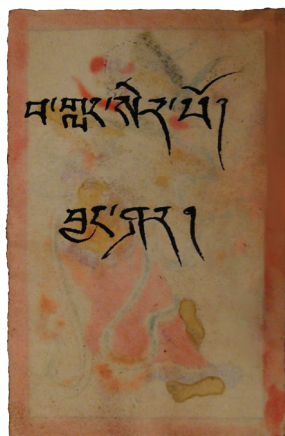 བ་གླང་སེར་པོ།
བྱང་ཤར །